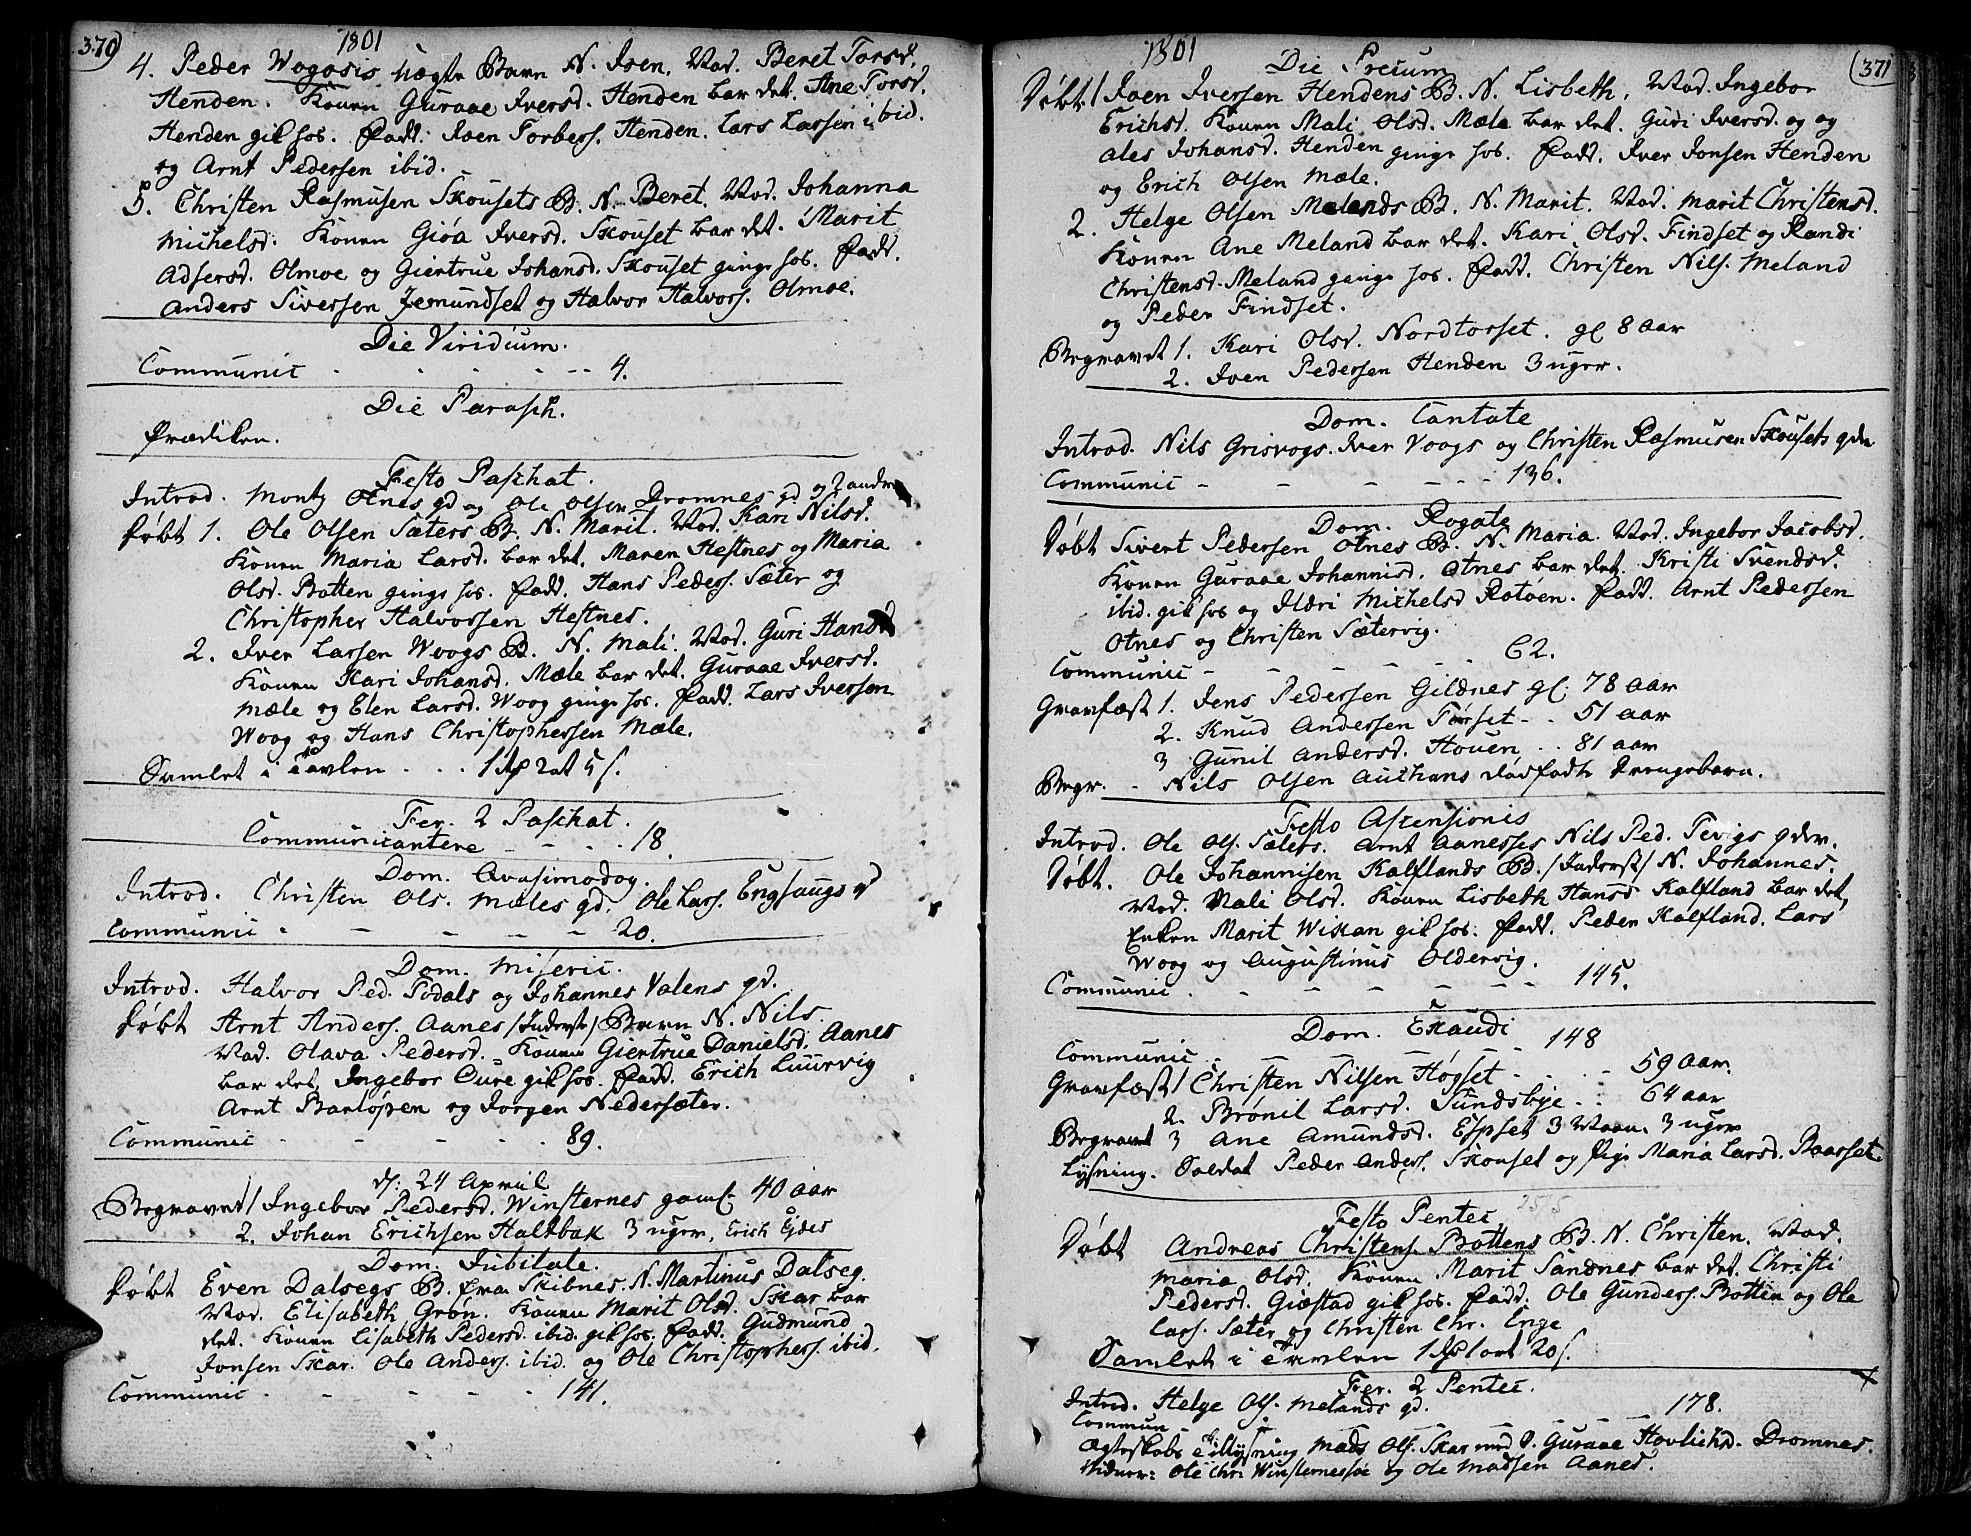 370
1801
4. Peder Wogosis Uægte Barn N. Joen. Mod. Beret Torsd.
Henden. Konen Guraae Iversd. Henden bar det. Ane Torsd.
Henden gik hos. Fadd: Joen Torbers. Henden. Lars Larsen ibid.
og Arnt Pedersen ibid.
5. Christen Rasmusen Skousets B. N. Beret. Mod. Johanna
Michelsd. Konen Giøa Iversd. Skouset bar det. Marit
Adsersd. Olmoe og Giertrue Johansd. Skouset ginge hos. Fadd.
Anders Siversen Jemundset og Halvor Halvors. Olmoe.
Die Viridium.
Communic - - - - 4.
Die Parasch.
Prædiken.
Festo Paschat.
Introd. Montz Otnes gd og Ole Olsen Dromnes gd og
Døbt 1. Ole Olsen Sæters B. N. Marit. Mod. Kari Nilsd.
Konen Maria Larsd. bar det. Maren Hestnes og Maria
Olsd. Botten ginge hos. Fadd. Hans Peders. Sæter og
Christopher Halvorsen Hestnes.
2. Iver Larsen Woogs B. N. Mali. Mod. Guri Hansd
Konen Kari Johansd. Mæle bar det. Guraae Iversd.
Mæle og Elen Larsd. Woog ginge hos. Fadd. Lars Iversen
Woog og Hans Christophersen Mæle.
Samlet i Tavlen . . . 1 2 ort 5 s.
Fer. 2 Paschat.
Communicantere - - - 18.
Dom. Qvasimodog.
Introd. Christen Ols. Mæles gd. Ole Lars. Engsaugs gd
Communic - - - - - 20.
Dom. Miseric.
Introd. Halvor Ped. Todals og Johannes Valens gd.
Døbt Arnt Anders. Aanes /Inderst/ Barn N. Nils.
Mod. Olava Pedersd. Konen Giertrue Danielsd. Aanes
bar det, Ingebor Cure gik hos. Fadd. Erich Luurvig
Arnt Barløpen og Jorgen Nedersæter.
Communic - - - - - 89.
d: 24 April
Begravet 1 Ingebor Pedersd. Winsternes gaml. 40 aar
2. Johan Erichsen Haltbak 3 uger, Erich Ejdes
Dom. Jubilate.
Døbt Even Dalsegs B. fra Skibnes. N. Martinus Dalseg.
Mod. Elisabeth Grøn. Konen Marit Olsd. Skar bar
det. Konen Lisabeth Pedersd. ibid. gik hos. Fadd. Gudmund
Jonsen Skar. Ole Anders. ibid. og Ole Christophers. ibid.
Communic - - - - - 141.
1801
371
Die Precum
Døbt 1 Joen Iversen Hendens B. N. Lisbeth. Mod. Ingebor
Erichsd. Konen Mali Olsd. Mæle bar det. Guri Iversd. og og
Ales Johansd. Henden ginge hos. Fadd. Iver Jonsen Henden
og Erich Olsen Mæle.
2. Helge Olsen Melands B. N. Marit. Mod. Marit Christensd.
Konen Ane Meland bar det. Kari Olsd. Findset og Randi
Christensd. Meland ginge hos. Fadd. Christen Nils. Meland
og Peder Findset.
Begravet 1. Kari Olsd. Nordtorset. gl 8 aar
2. Iven Pedersen Henden 3 uger.
Dom. Cantate
Introd. Nils Grisvogs. Iver Voogs og Christen Rasmusen Skousets qder
Communic - - - - - 136.
Dom. Rogate
Døbt Sivert Pedersen Otnes B. N. Maria. Mod. Ingebor Jacobsd.
Konen Guraae Johannisd. Otnes bar det. Kristi Svendsd.
ibid. gik hos og Ildri Michelsd Rotøen. Fadd. Arnt Pedersen
Otnes og Christen Sætervig.
Communic - - - - - 62.
Gravfæst 1. Jens Pedersen Gildnes gl. 78 aar
2. Knud Andersen Torset - . 51 aar
3 Gunil Andersd. Houen . . 81 aar
Begr. - Nils Olsen Authans dødfødte Drengebarn.
Festo Ascensionis
Introd. Ole Ols. Sæters. Arnt Aanesses Nils Ped. Tevigs qder.
Døbt. Ole Johannisen Kalflands B. /Inderst/ N. Johannes.
Mod. Mali Olsd. Konen Lisbeth Hansd Kalfland bar det,
Enken Marit Wikan gik hos. Fadd. Peder Kalfland. Lars
Woog og Augustinus Oldervig.
Communic . - - - - - 145.
Dom. Exaudi
Communic . - - - - 148
Gravfæst 1 Christen Nilsen Høgset - - - 59 aar.
2. Brønil Larsd. Sundsbye . . 64 aar
Begravet 3 Ane Amundsd. Espset 3 Maan. 3 uger
Lysning. Soldat Peder Anders. Skouset og Pige Maria Larsd. Raasset.
Festo Pentec
Døbt Andreas Christens. Bottens B. N. Christen. Mod.
Maria Olsd. Konen Marit Sandnes bar det. Christi
Pedersd. Giøstad gik hos. Fadd. Ole Gunders. Botten og Ole
Lars. Sæter og Christen Chr. Enge
Samlet i Tavlen 1 1 ort 20 s.
Fer. 2 Pentec.
Introd. Helge Ols. Melands gd.
Commun - - - - - 178.
Ægteskabs Tillysning Mads Ols. Skar med P. Guraae Hovlichd. Dromnes.
Vidner: Ole Chri Winsternessøe og Ole Madsen Aanes.